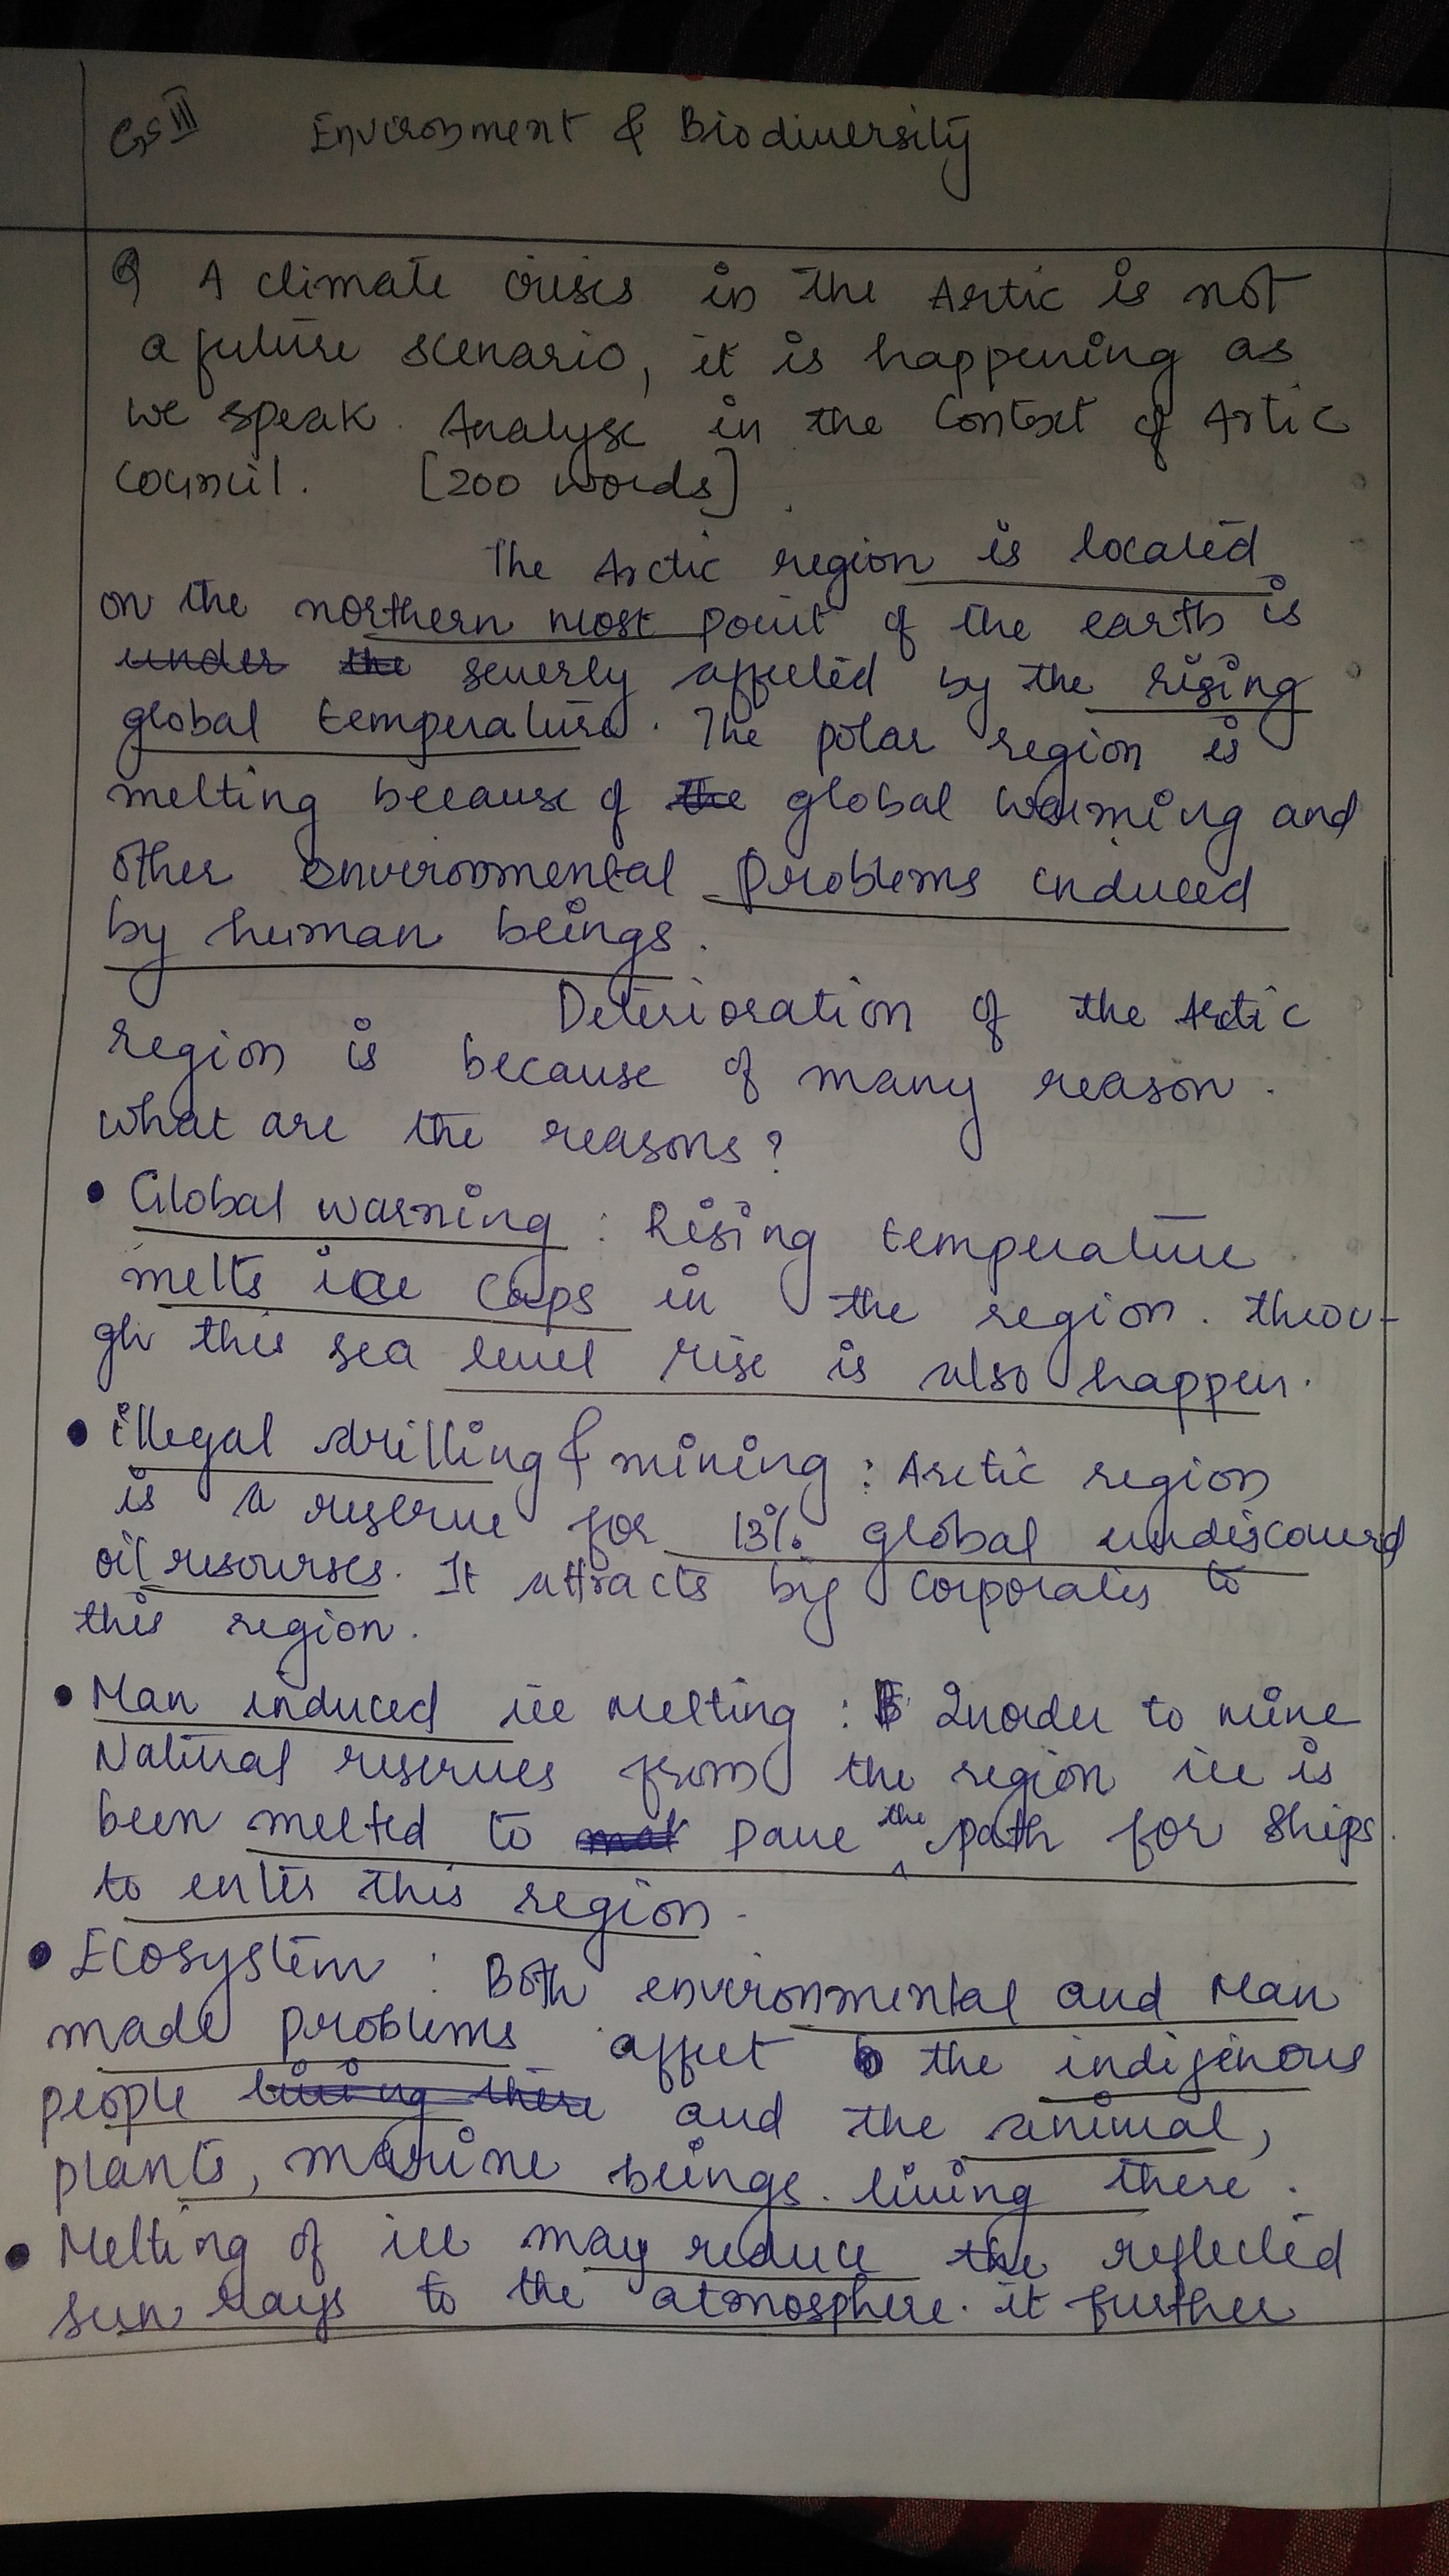 GS III Environment & Biodiversity
Q A climate crisis in the Artic is not
a future scenario, it is happening as
we speak. Analyse in the Context of Artic
Council. [200 words]
The Arctic region is located
on the northern most point of the earth is
under the severly affected by the rising
global temperature. The polar region is
melting because of the global warming and
other environmental problems induced
by human beings.
Deterioration of the Arctic
region is because of many reason.
what are the reasons?
• Global warning : Rising temperature
melts ice caps in the region. throu-
gh this sea level rise is also happen.
• illegal drilling & mining : Arctic region
is a reserve for 13% global undiscoverd
oil resourses. It attracts big corporates to
this region.
• Man induced ice melting : Inorder to mine
Natural reserves from the region ice is
been melted to pave the path for ships
to enter this region.
• Ecosystem : Both environmental and Man
made problems affect the indigenous
people living there and the animal,
plants, marine beings living there.
• Melting of ice may reduce the reflected
sun rays to the atmosphere. it further